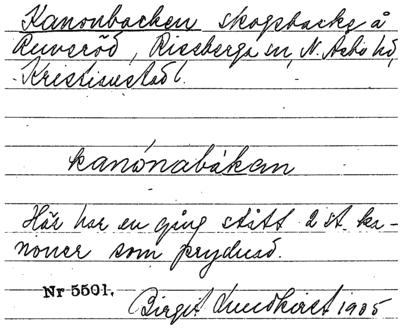 Kanonbacken skogsbacke å
Ruveröd, Riseberga sn, N. Åsbo hd,
Kristianstad l.
kanónabákan
Här har en gång stått 2 st. ka-
noner som prydnad.
Nr 5501.
Birgit Lundkvist 1935